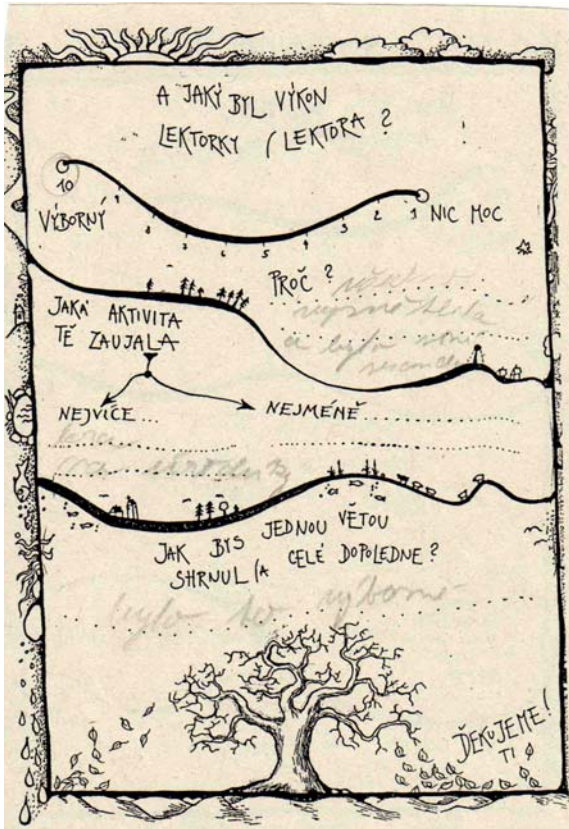 A JAKÝ BYL VÝKON
LEKTORKY / LEKTORA ?
10 9 8 7 6 5 4 3 2 1
VÝBORNÝ
NIC MOC
PROČ ?
a byla
JAKÁ AKTIVITA
TĚ ZAUJALA
NEJVÍCE
NEJMÉNĚ
na
JAK BYS JEDNOU VĚTOU
SHRNUL/A CELÉ DOPOLEDNE ?
bylo to výborné
DĚKUJEME!
TI